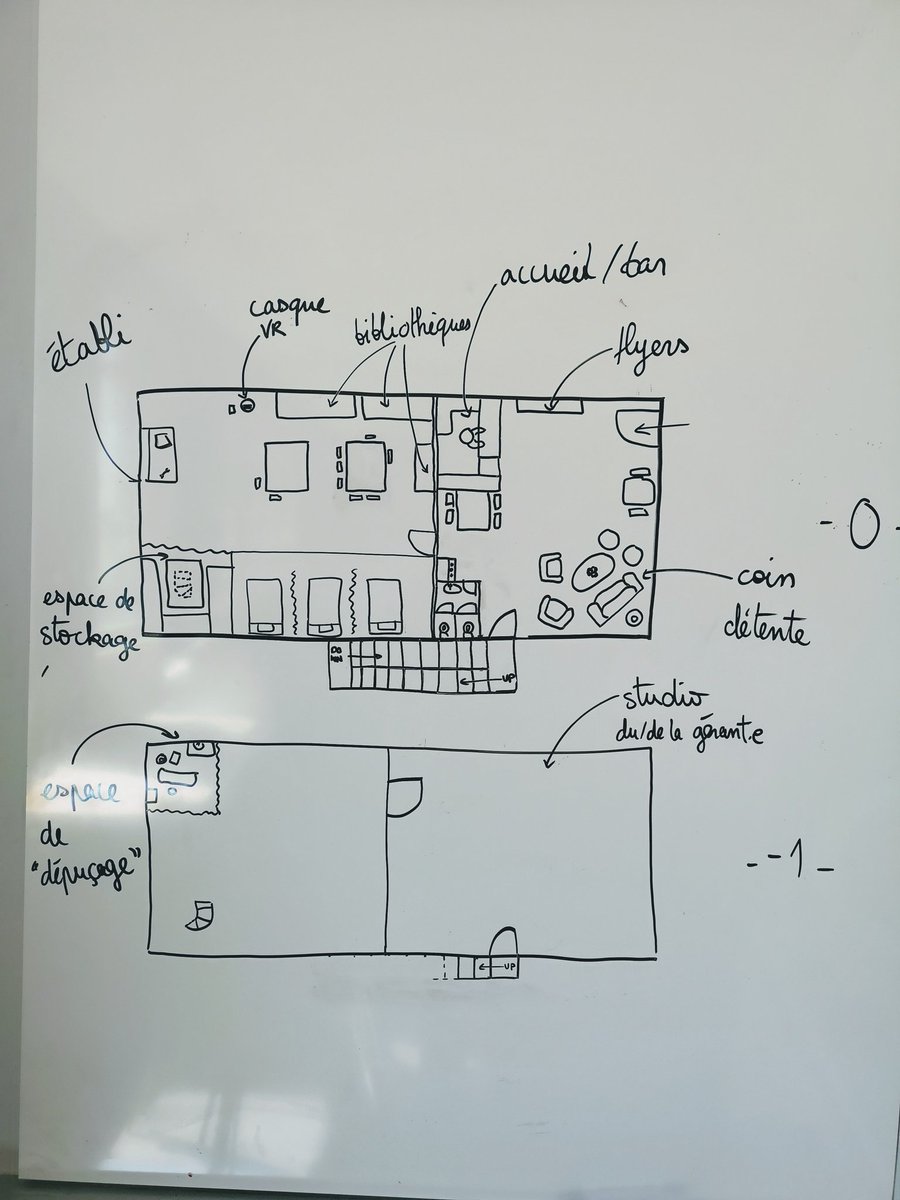 accueil/bar
casque
VR
bibliothèques
établi
flyers
- 0 -
espace de
stockage
coin
détente
DO
WN
UP
studio
du/de la gérant.e
espace
de
"dépuçage"
- -1 -
UP